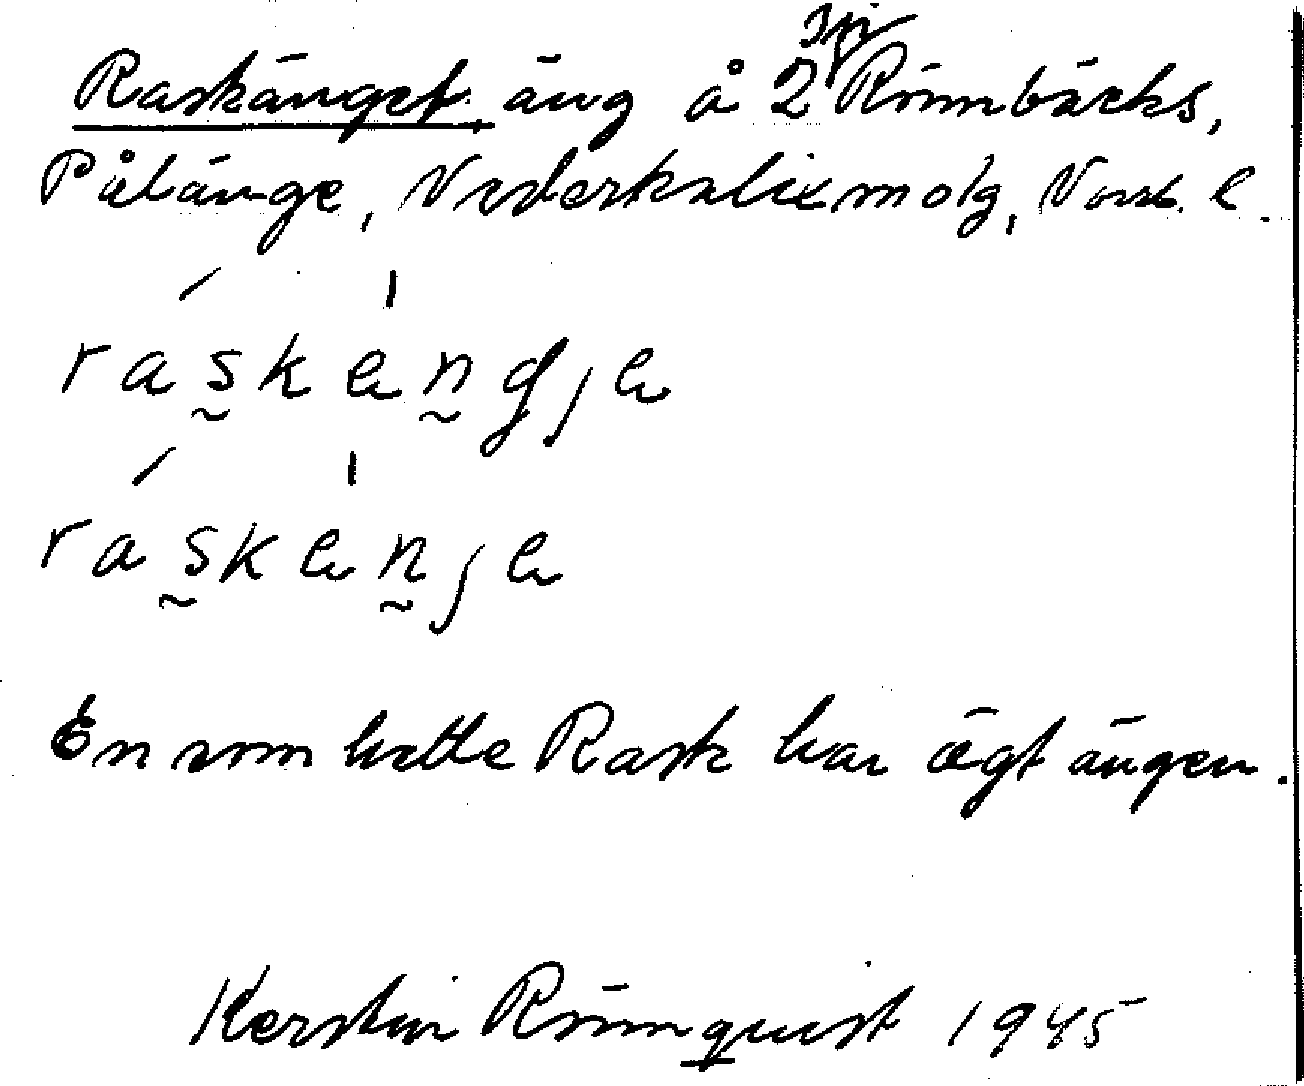 Raskänget, äng å 2 Rönnbäcks,
Pålänge, Nederkalix msg, Norrb. l.
raskängja
raskänja
En som hette Rask har ägt ängen.
Kerstin Rönnquist 1945